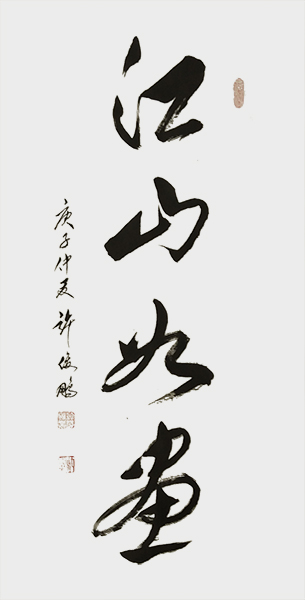 江山如画
庚子仲夏 许俊鹏